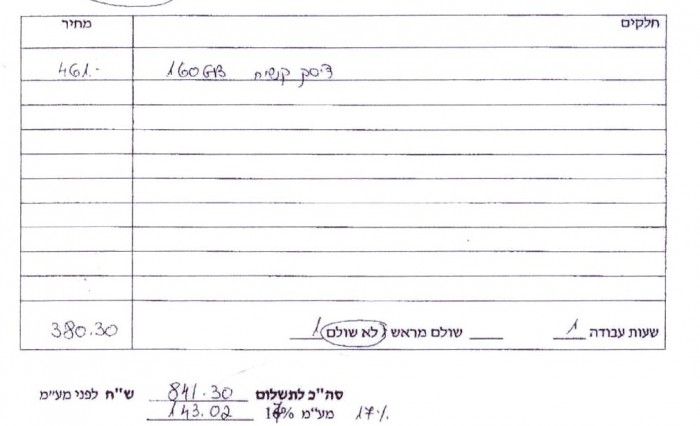 חלקים מחיר
דיסק קשיח 160GB 461.-
שעות עבודה 1 שולם מראש / לא שולם 1 380.30
סה"כ לתשלום 841.30 ש"ח לפני מע"מ
מע"מ 17% 143.02 17%